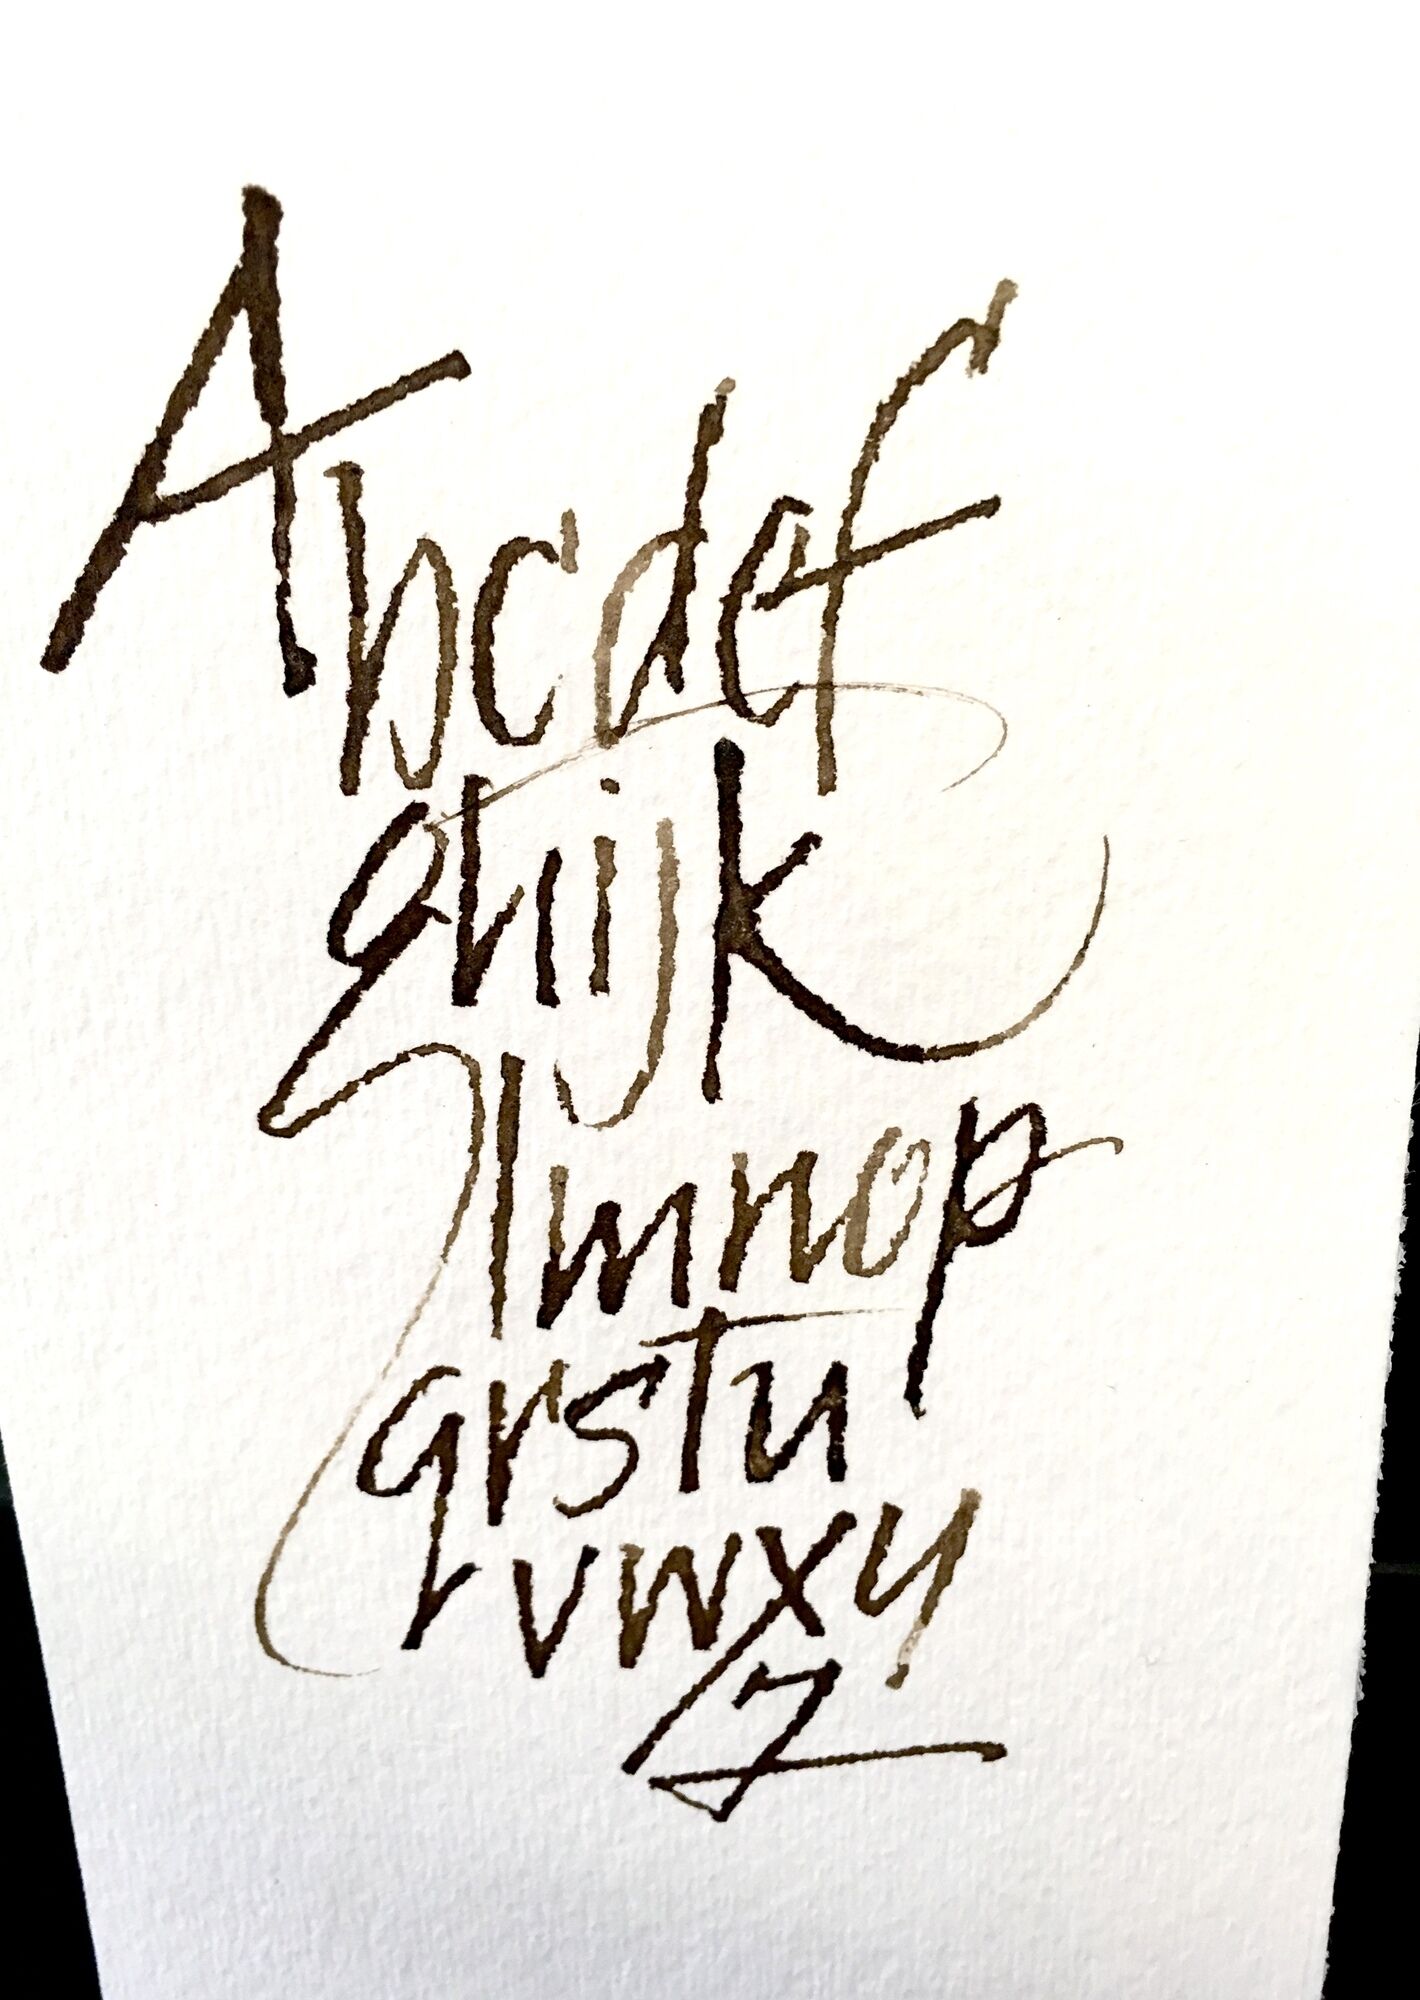 Abcdef
ghijk
lmnop
qrstu
vwxy
z